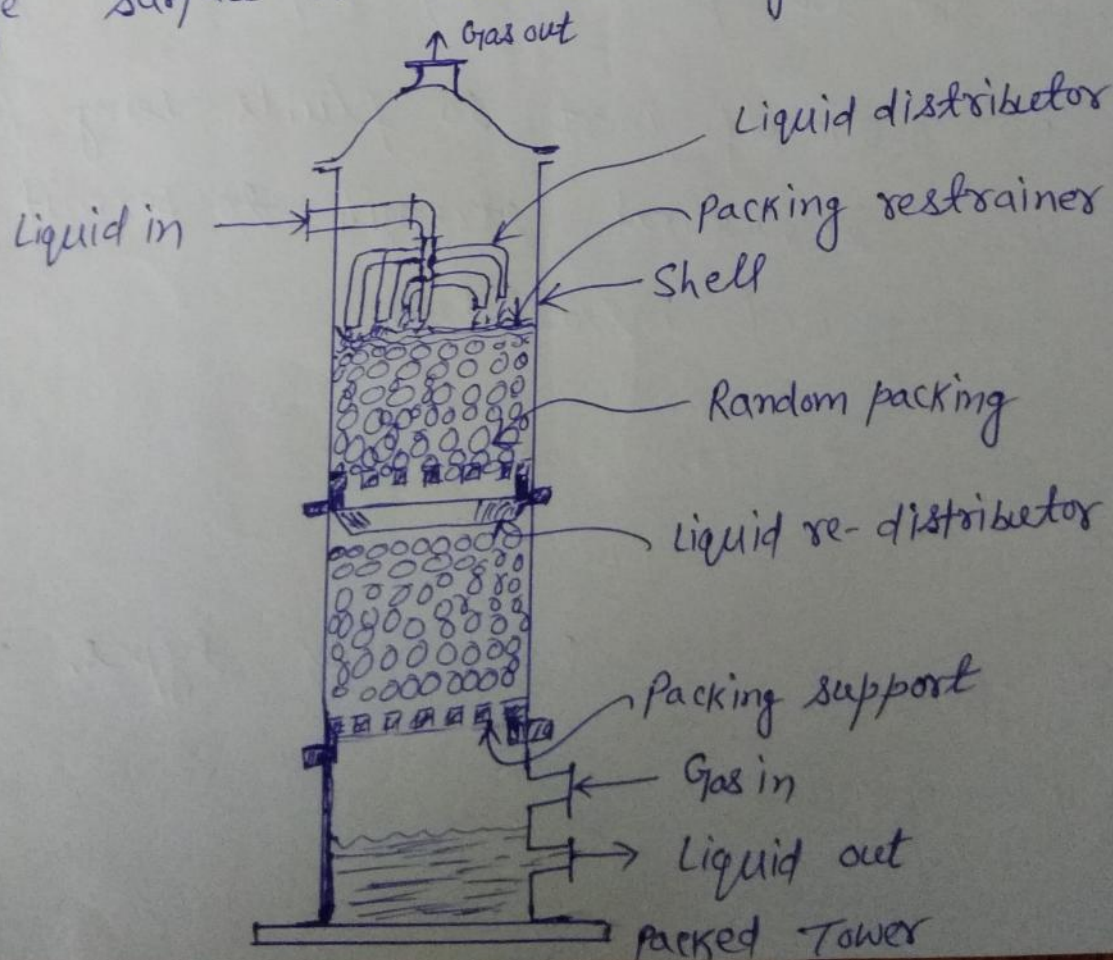 Gas out
Liquid distributor
Packing restrainer
Liquid in
Shell
Random packing
Liquid re-distributor
Packing support
Gas in
Liquid out
Packed Tower